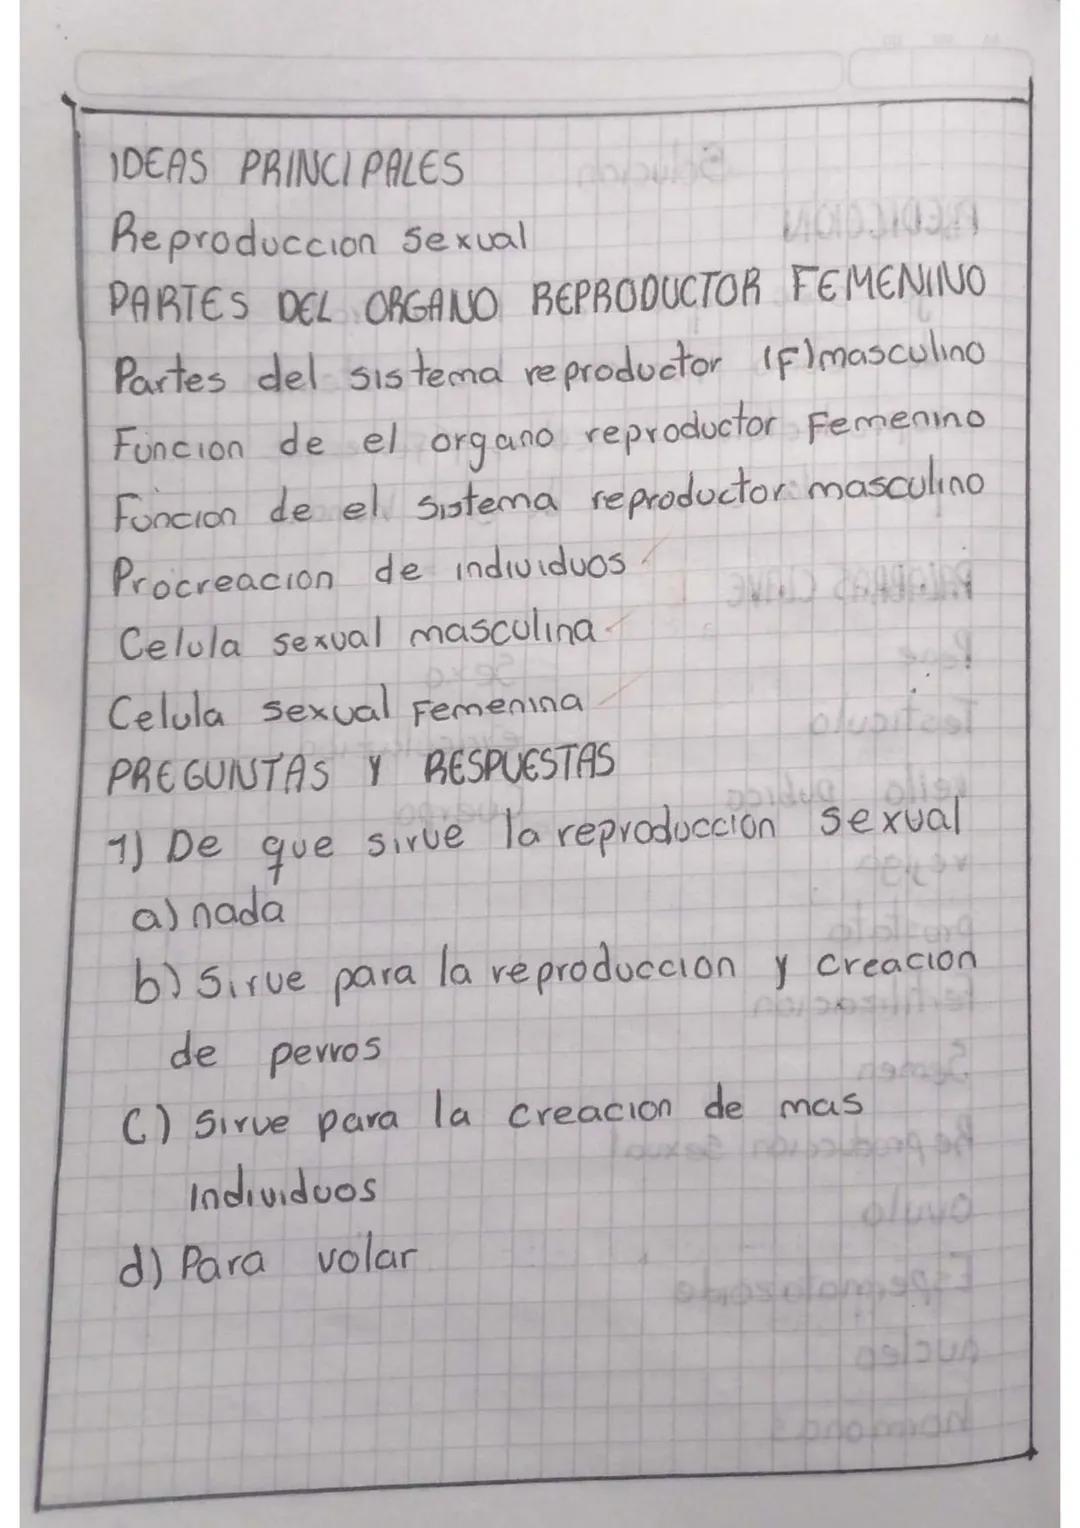 IDEAS PRINCIPALES
Reproduccion sexual
PARTES DEL ORGANO REPRODUCTOR FEMENINO
Partes del sistema reproductor (F)masculino
Funcion de el organo reproductor Femenino
Funcion de el sistema reproductor masculino
Procreacion de individuos
Celula sexual masculina
Celula sexual Femenina
PREGUNTAS Y RESPUESTAS
1) De que sirve la reproduccion sexual
a) nada
b) Sirve para la reproduccion y creacion
de perros
C) Sirve para la creacion de mas
Individuos
d) Para volar